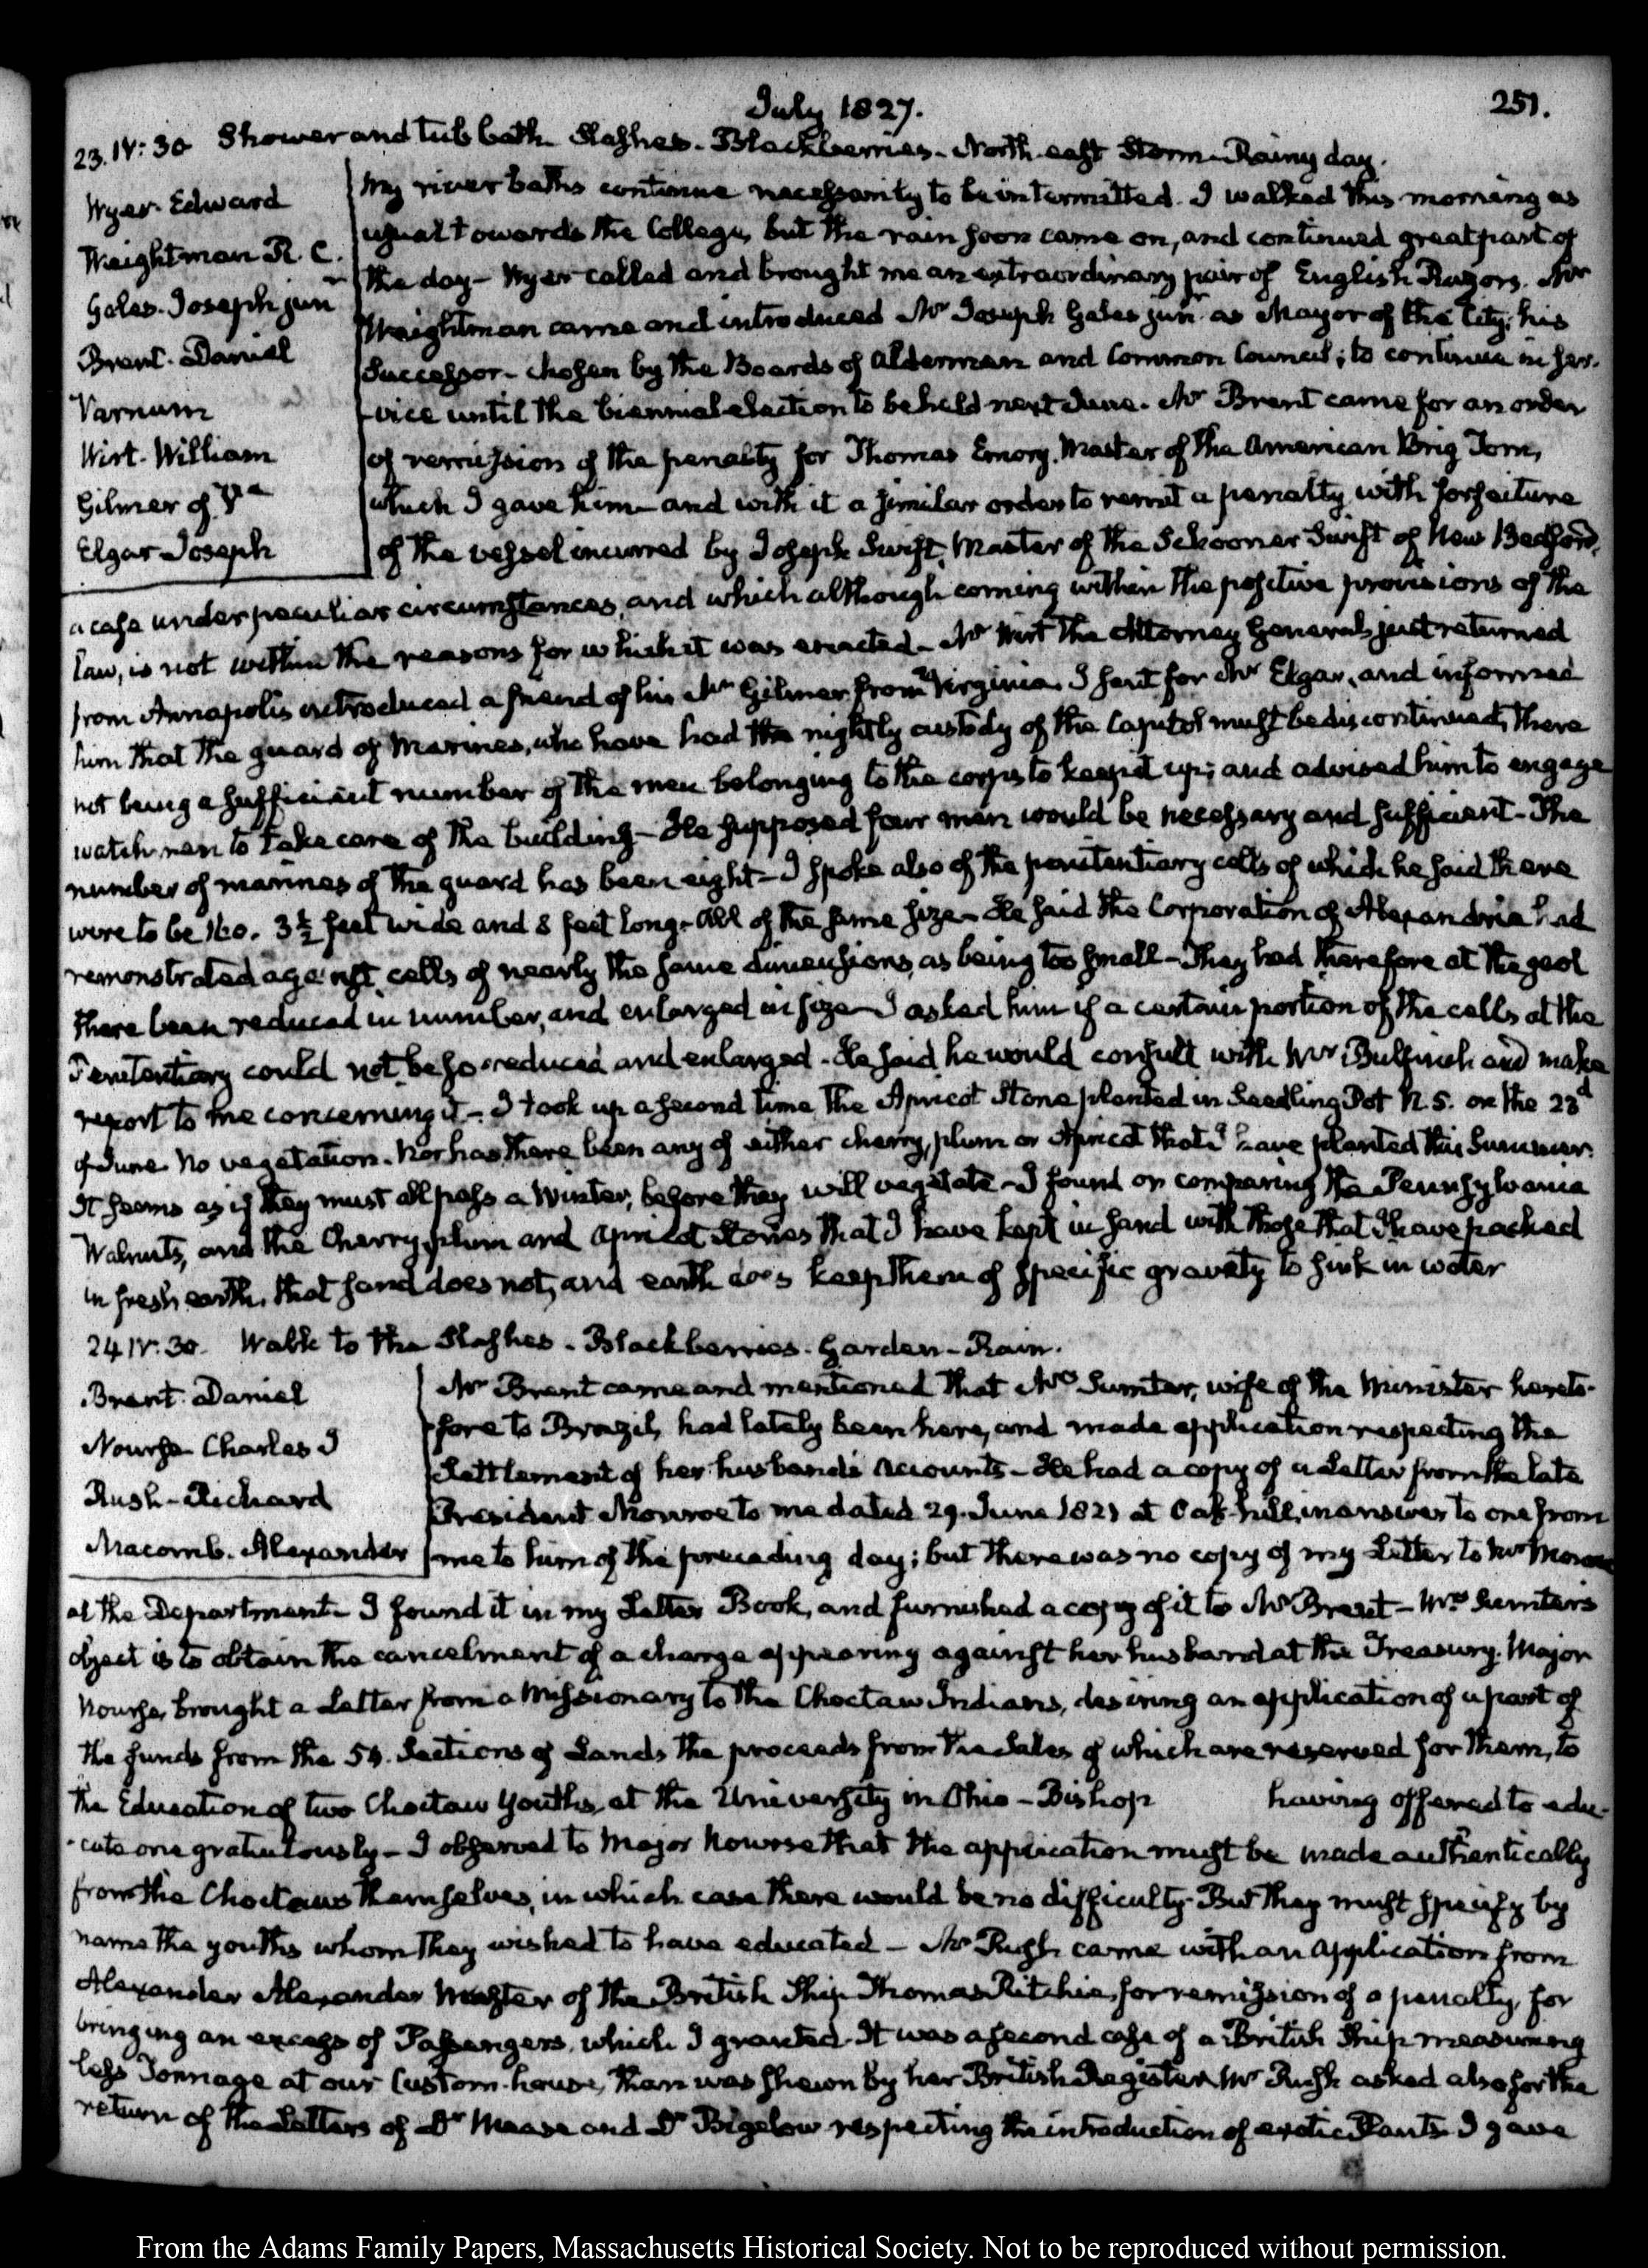 July 1827.
251.
23. IV: 30 Shower and tub bath. Slashes. Blackberries. North-east Storm. Rainy day.
Wyer. Edward
Weightman R. C.
Gales. Joseph junr
Brent. Daniel
Varnum
Wirt. William
Gilmer of Va
Elgar Joseph
My river baths continue necessarily to be intermitted. I walked this morning as
usual towards the College, but the rain soon came on, and continued great part of
the day — Wyer called and brought me an extraordinary pair of English Razors. Mr
Weightman came and introduced Mr Joseph Gales junr as Mayor of the City; his
Successor — chosen by the Boards of Aldermen and Common Council; to continue in ser-
vice until the biennial election to be held next June. Mr Brent came for an order
of remission of the penalty for Thomas Emory, Master of the American Brig Tom,
which I gave him — and with it a similar order to remit a penalty with forfeiture
of the vessel incurred by Joseph Swift, Master of the Schooner Swift of New Bedford,
a case under peculiar circumstances, and which although coming within the positive provisions of the
Law, is not within the reasons for which it was enacted — Mr Wirt the Attorney General, just returned
from Annapolis introduced a friend of his Mr Gilmer from Virginia. I sent for Mr Elgar, and informed
him that the guard of Marines, who have had the nightly custody of the Capitol must be discontinued, there
not being a sufficient number of the men belonging to the corps to keep it up; and advised him to engage
watchmen to take care of the building — He supposed four men would be necessary and sufficient — The
number of marines of the guard has been eight — I spoke also of the penitentiary cells of which he said there
were to be 160. 3½ feet wide and 8 feet long — All of the same size — He said the Corporation of Alexandria had
remonstrated against cells of nearly the same dimensions, as being too small — They had therefore at the gaol
there been reduced in number, and enlarged in size — I asked him if a certain portion of the cells at the
Penitentiary could not be so reduced and enlarged — He said he would consult with Mr Bulfinch and make
report to me concerning it — I took up a second time the Apricot Stone planted in Seedling Pot N. 5. on the 23d
of June. No vegetation. Nor has there been any of either cherry, plum or Apricot that I have planted this Summer.
It seems as if they must all pass a Winter, before they will vegetate — I found on comparing the Pennsylvania
Walnuts, and the Cherry, plum and apricot stones that I have kept in sand with those that I have packed
in fresh earth, that sand does not, and earth does keep them of specific gravity to sink in water
24 IV. 30. Walk to the Slashes. Blackberries. Garden — Rain.
Brent. Daniel
Nourse Charles J
Rush — Richard
Macomb. Alexander
Mr Brent came and mentioned that Mrs Sumter, wife of the Minister hereto-
fore to Brazil, had lately been here, and made application respecting the
Settlement of her husband's Accounts — He had a copy of a Letter from the late
President Monroe to me dated 29. June 1821 at Oak-hill, in answer to one from
me to him of the preceding day; but there was no copy of my Letter to Mr Monroe
at the Department — I found it in my Letter Book, and furnished a copy of it to Mr Brent — Mrs Sumter's
object is to obtain the cancelment of a charge appearing against her husband at the Treasury. Major
Nourse, brought a Letter from a Missionary to the Choctaw Indians, desiring an application of a part of
the funds from the 54. Sections of Lands the proceeds from the Sales of which are reserved for them, to
the Education of two Choctaw Youths, at the University in Ohio — Bishop having offered to edu-
cate one gratuitously — I observed to Major Nourse that the application must be made authentically
from the Choctaws themselves, in which case there would be no difficulty. But they must specify by
name the youths whom they wished to have educated — Mr Rush came with an application from
Alexander Alexander Master of the British Ship Thomas Ritchie, for remission of a penalty, for
bringing an excess of Passengers, which I granted. It was a second case of a British Ship measuring
less Tonnage at our Custom-house, than was shewn by her British Register. Mr Rush asked also for the
return of the Letters of Dr Mease and Dr Bigelow respecting the introduction of exotic Plants. I gave
From the Adams Family Papers, Massachusetts Historical Society. Not to be reproduced without permission.